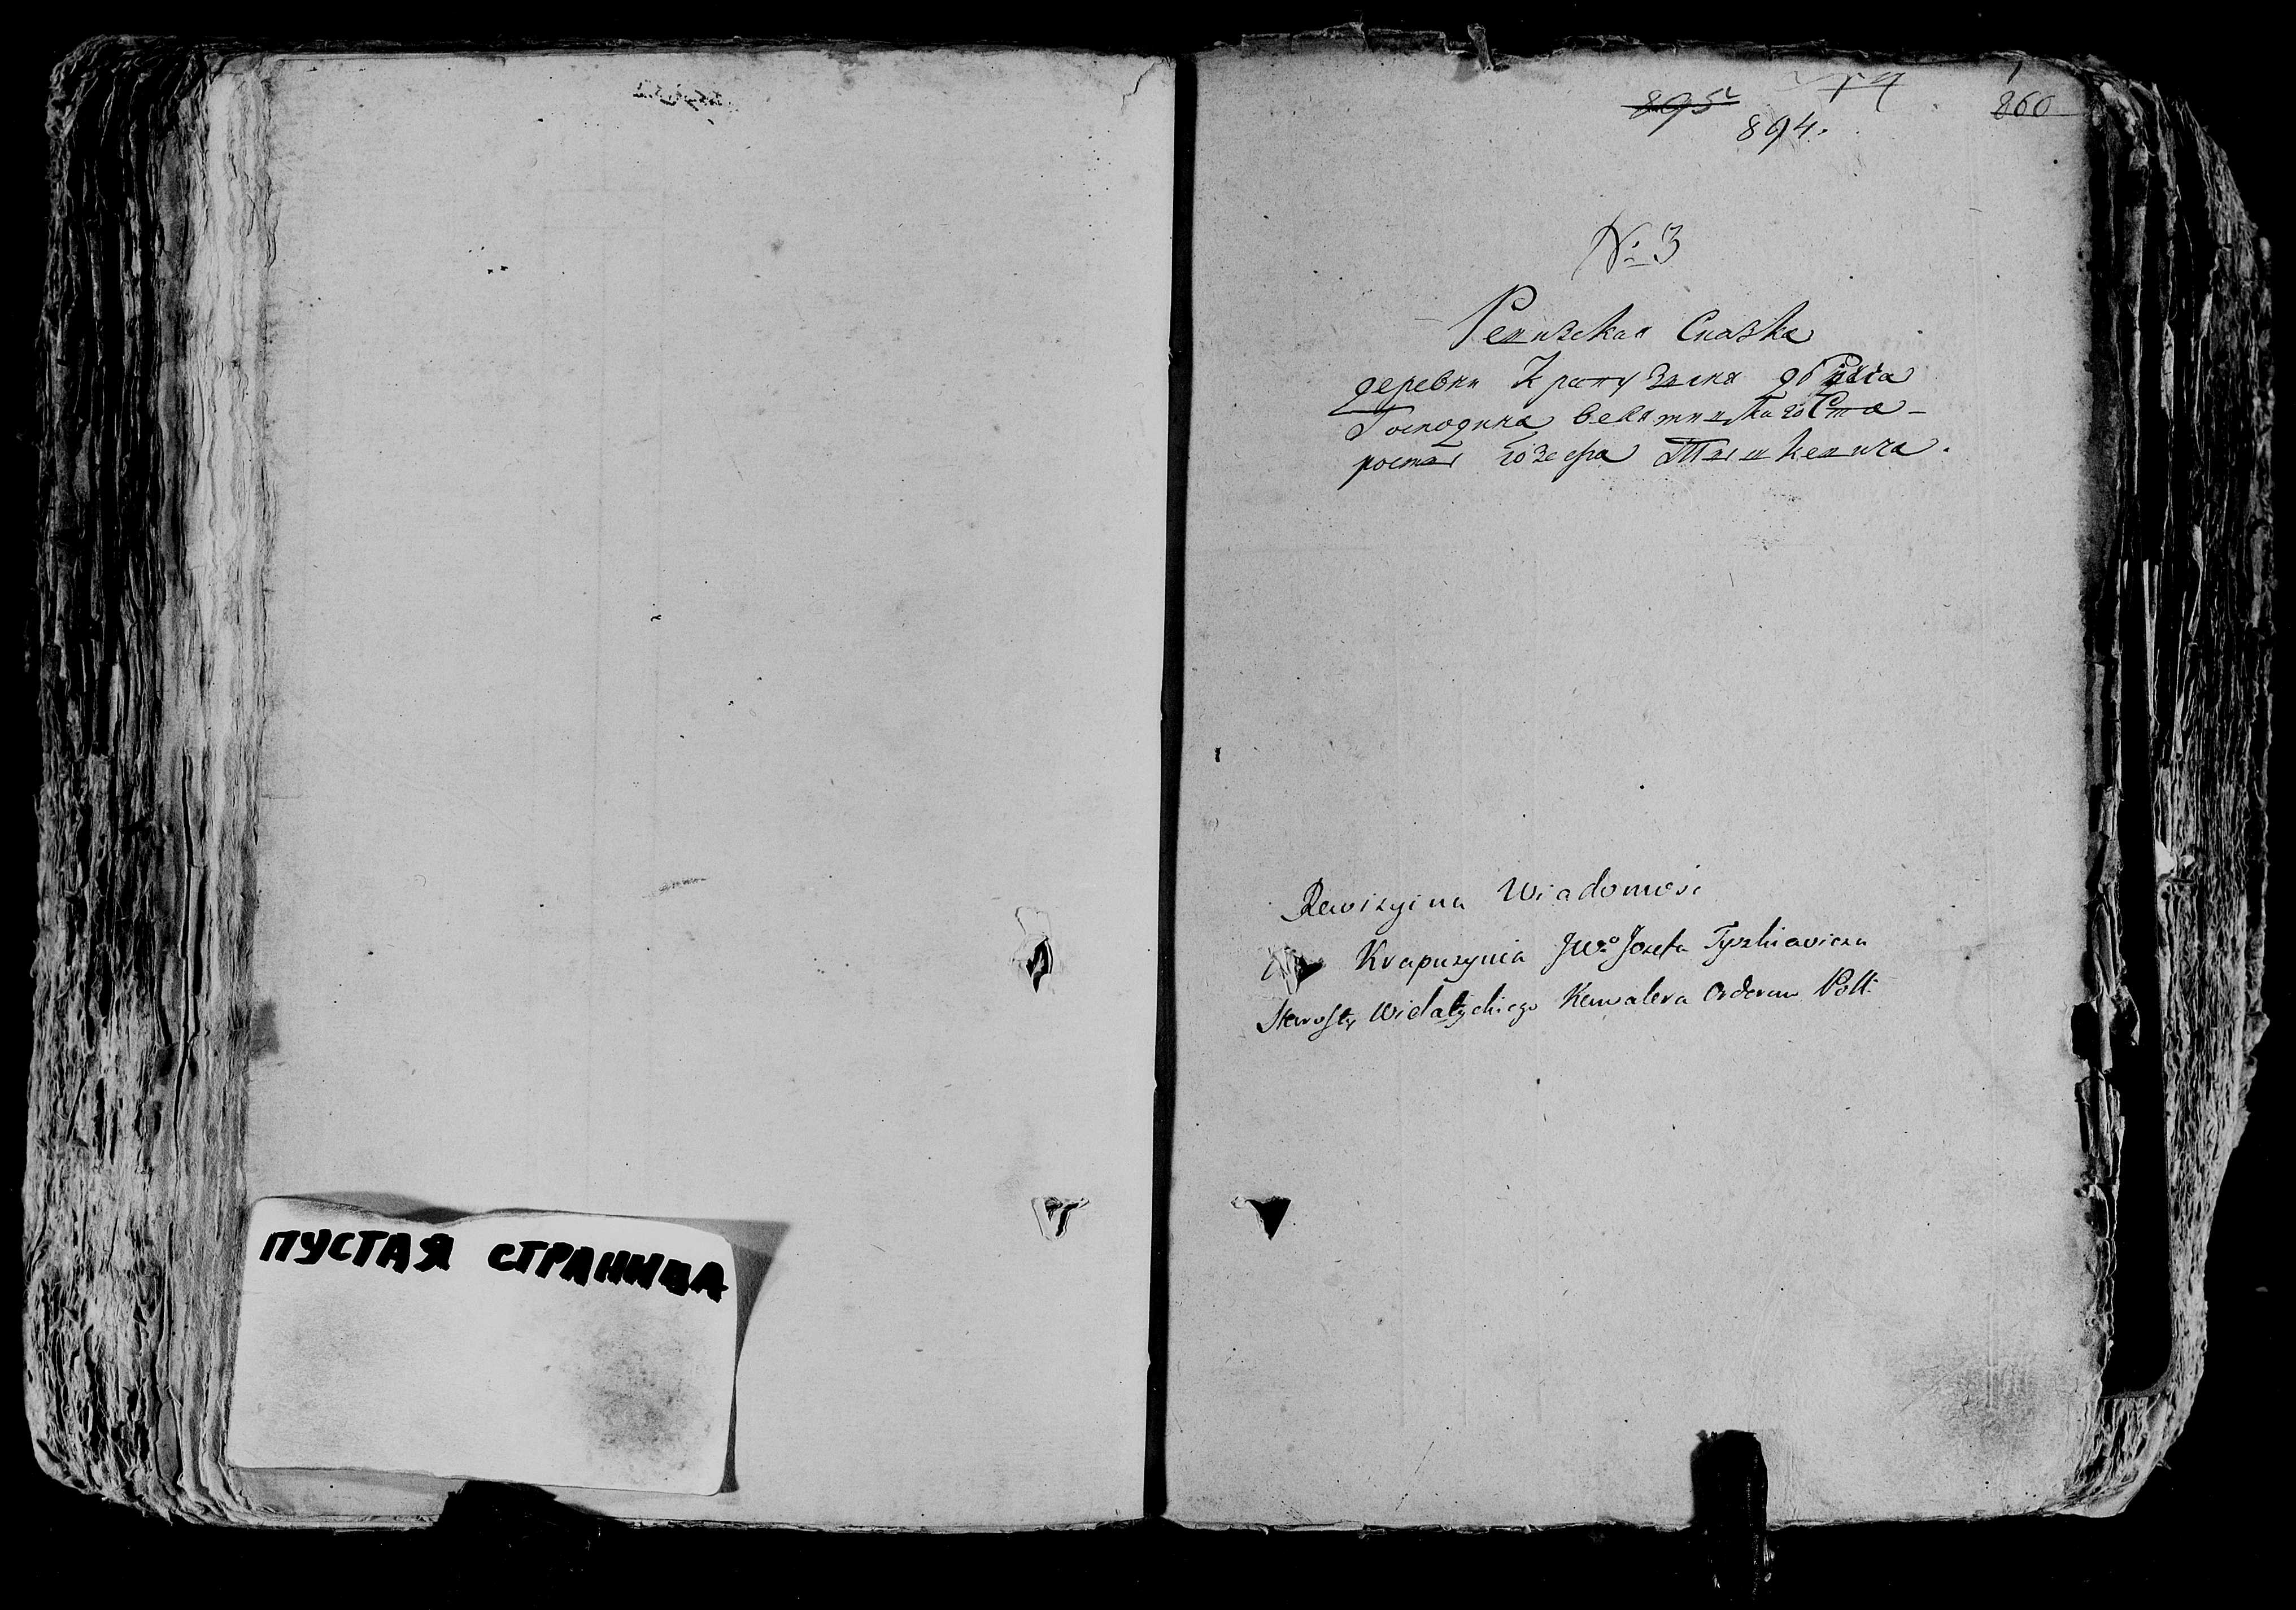 ПУСТАЯ СТРАНИЦА
895
894.
860
№ 3
Ревизская Сказка
деревни Крапузыня
Господина Велятицкаго Ста-
росты Юзефа Тышкевича.
Rewizyina Wiadomość
Krapuzynia JWo Jozefa Tyszkiewicza
Starosty Wielatyckiego Kawalera Orderow Polł: